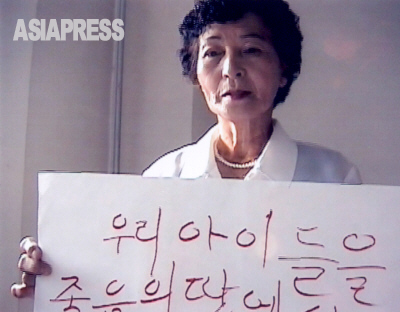 ASIAPRESS
우리 아이들을
죽음의 땅에